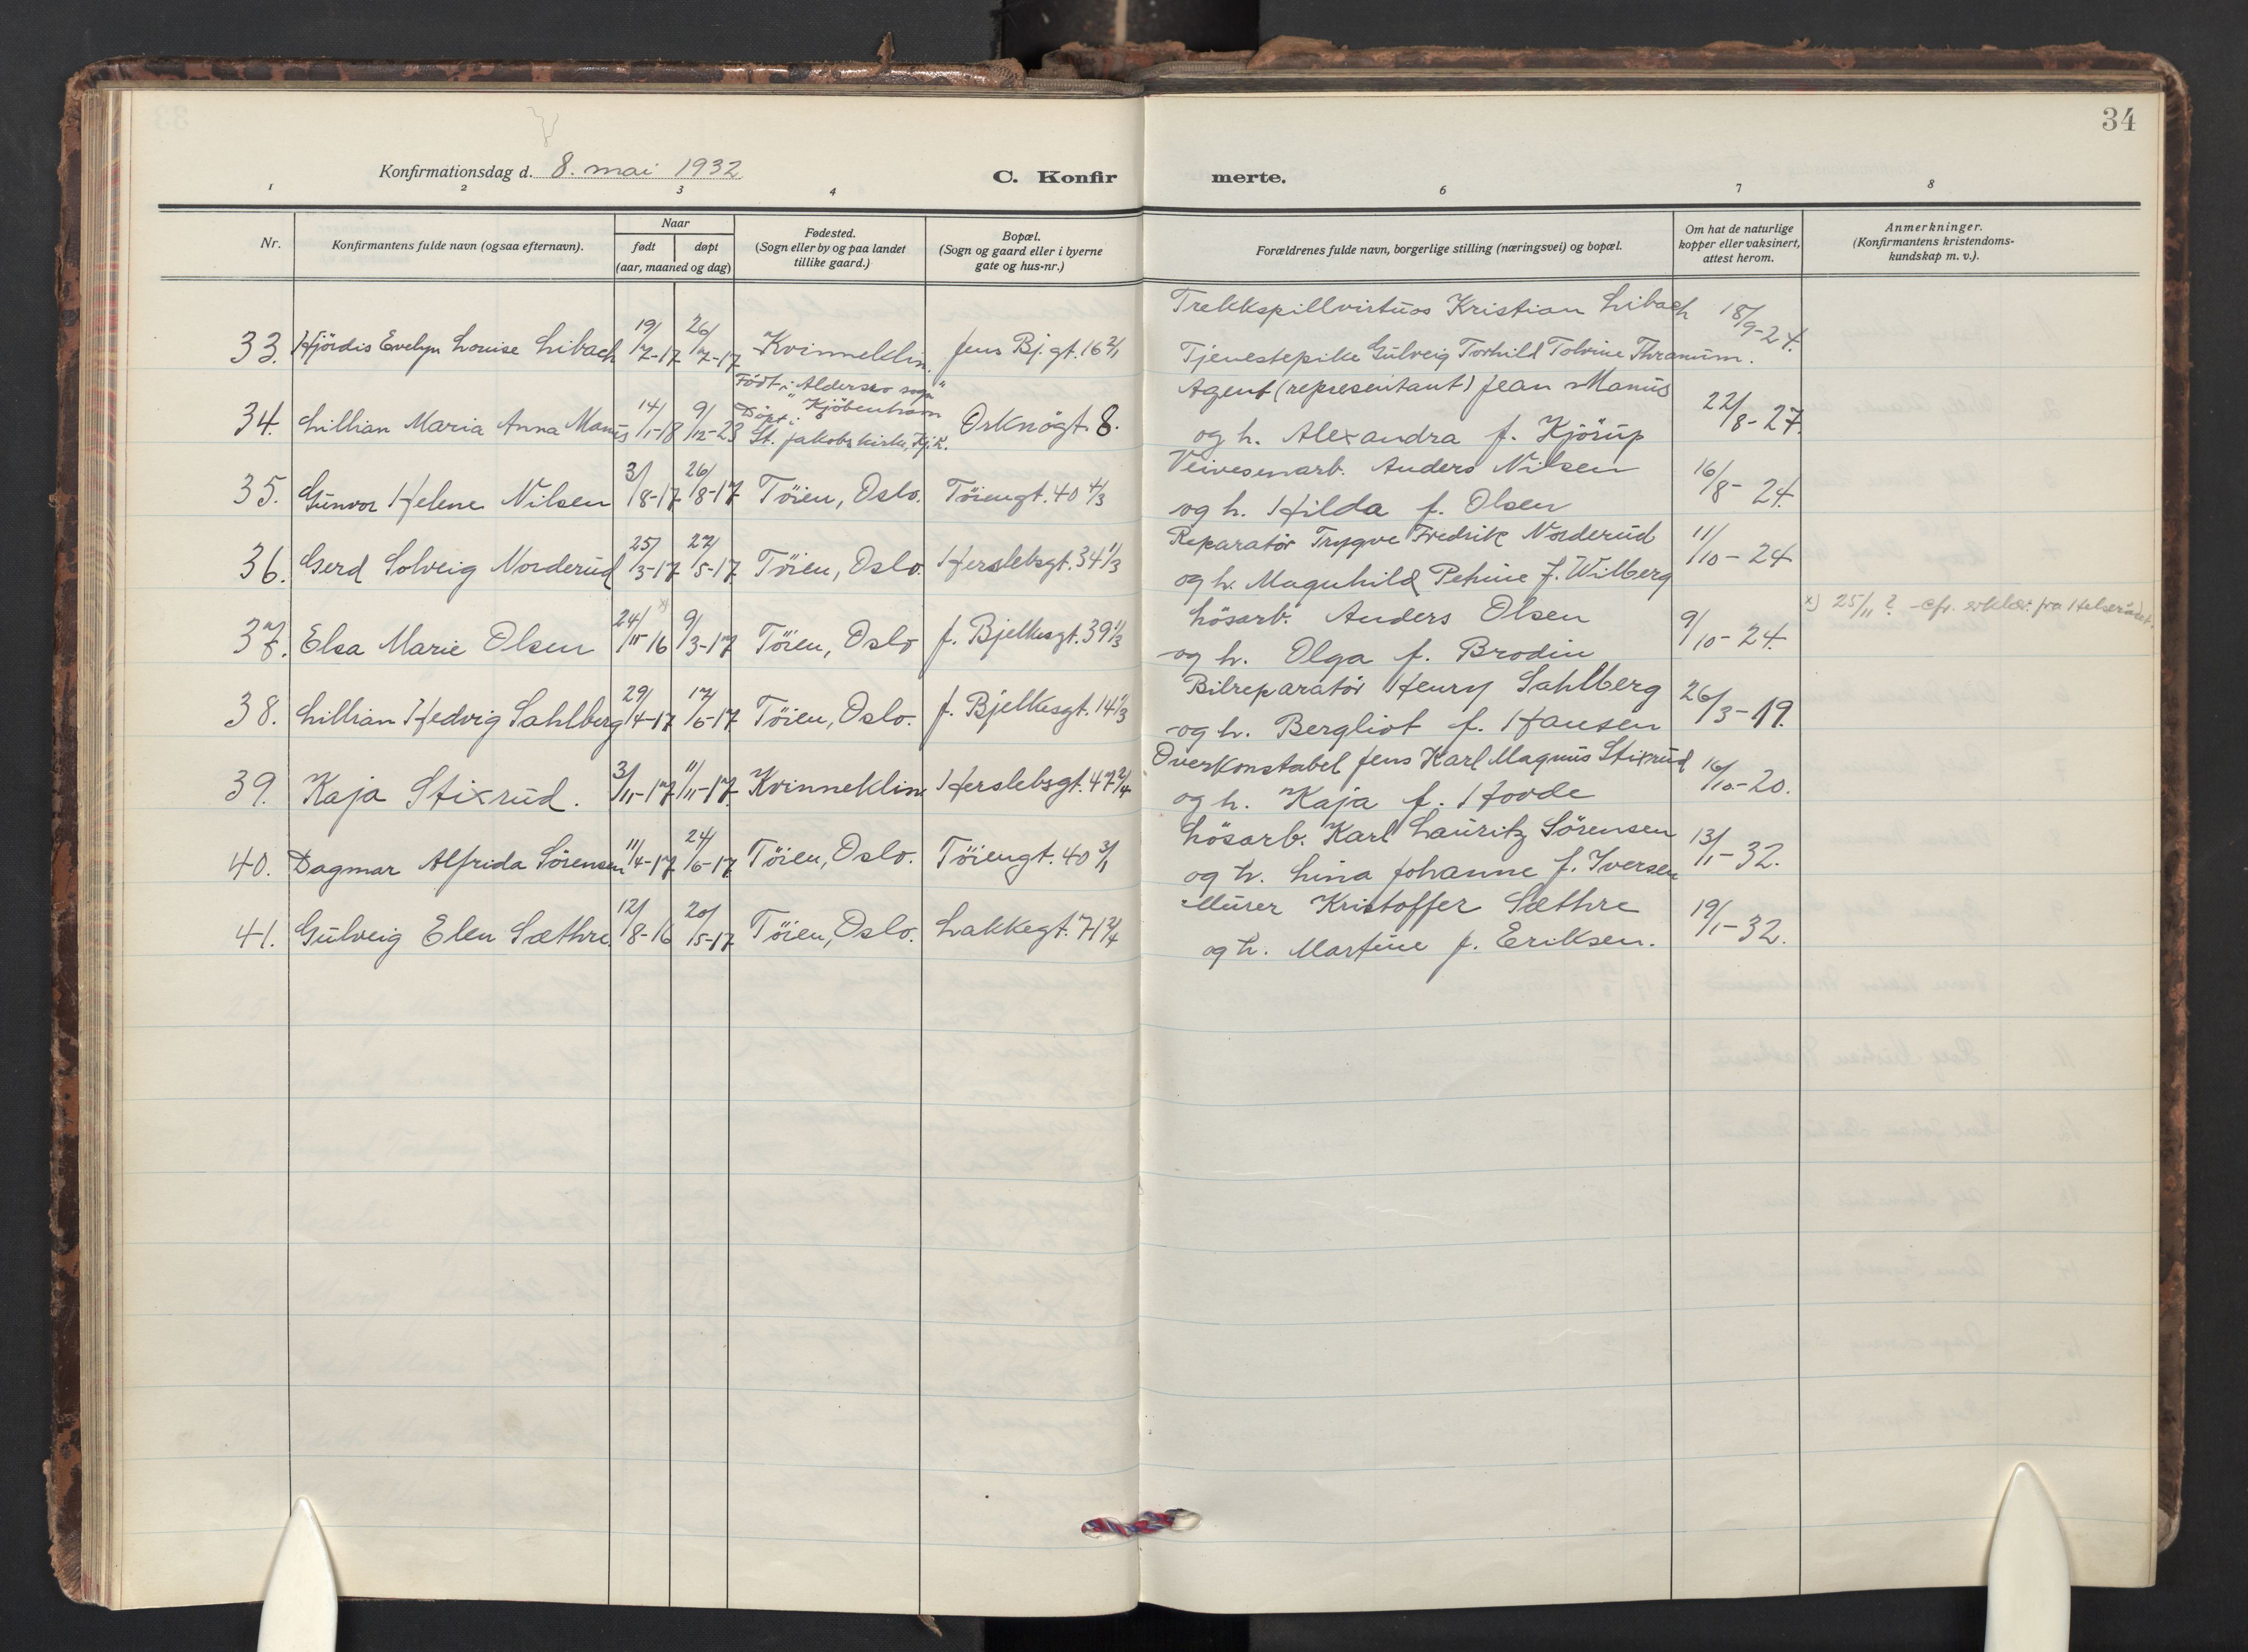 34
Konfirmationsdag d. 8. mai 1932
C. Konfir merte.
1 2 3 4 6 7 8
Nr.
Konfirmantens fulde navn (ogsaa efternavn).
Naar
født døpt
(aar, maaned og dag)
Fødested.
(Sogn eller by og paa landet
tillike gaard.)
Bopæl.
(Sogn og gaard eller i byerne
gate og hus-nr.)
Forældrenes fulde navn, borgerlige stilling (næringsvei) og bopæl.
Om hat de naturlige
kopper eller vaksinert,
attest herom.
Anmerkninger.
(Konfirmantens kristendoms-
kundskap m. v.).
33. Hjördis Evelyn Louise Libach 19/7-17 26/7-17 Kvinneklin. Jens Bj.gt. 16 2/1
Trekkspillvirtuos Kristian Libach
Tjenestepike Gulveig Torhild Tolvine Thranum.
18/9-24.
34. Lillian Maria Anna Manus 14/1-18 9/12-23
Födt i "Aldersro sogn"
Kjöbenhavn
Döpt i
St. Jakobs kirke, Kj.h.
Orknögt. 8.
Agent (representant) Jean Manus
og h. Alexandra f. Kjörup
22/8-27.
35. Gunvor Helene Nilsen 3/8-17 26/8-17 Töien, Oslo. Töiengt. 40 4/3
Veivesenarb. Anders Nilsen
og h. Hilda f. Olsen
16/8-24.
36. Gerd Solveig Norderud 25/3-17 27/5-17 Töien, Oslo. Herslebsgt. 34 1/3
Reparatör Trygve Fredrik Norderud
og h. Magnhild Petrine f. Wilberg
11/10-24
37. Elsa Marie Olsen 24/11-16 x) 9/3-17 Töien, Oslo J. Bjelkesgt. 39 1/3
Lösarb. Anders Olsen
og h. Olga f. Brodin
9/10-24.
x) 25/11? - cfr. erklær. fra Helserådet.
38. Lillian Hedvig Sahlberg 29/4-17 17/6-17 Töien, Oslo. J. Bjelkesgt. 14 1/3
Bilreparatör Henry Sahlberg
og h. Bergliot f. Hansen
26/3-19.
39. Kaja Stixrud. 3/11-17 11/11-17 Kvinneklin Herslebsgt. 47 2/4
Overkonstabel Jens Karl Magnus Stixrud
og h. Kaja f. Hovde
16/10-20.
40. Dagmar Alfrida Sörensen 11/4-17 24/6-17 Töien, Oslo. Töiengt. 40 3/1
Lösarb. Karl Lauritz Sörensen
og h. Lina Johanne f. Iversen
13/1-32.
41. Gulveig Elen Sæthre 12/8-16 20/5-17 Töien, Oslo. Lakkegt. 71 2/4
Murer Kristoffer Sæthre
og h. Martine f. Eriksen.
19/1-32.